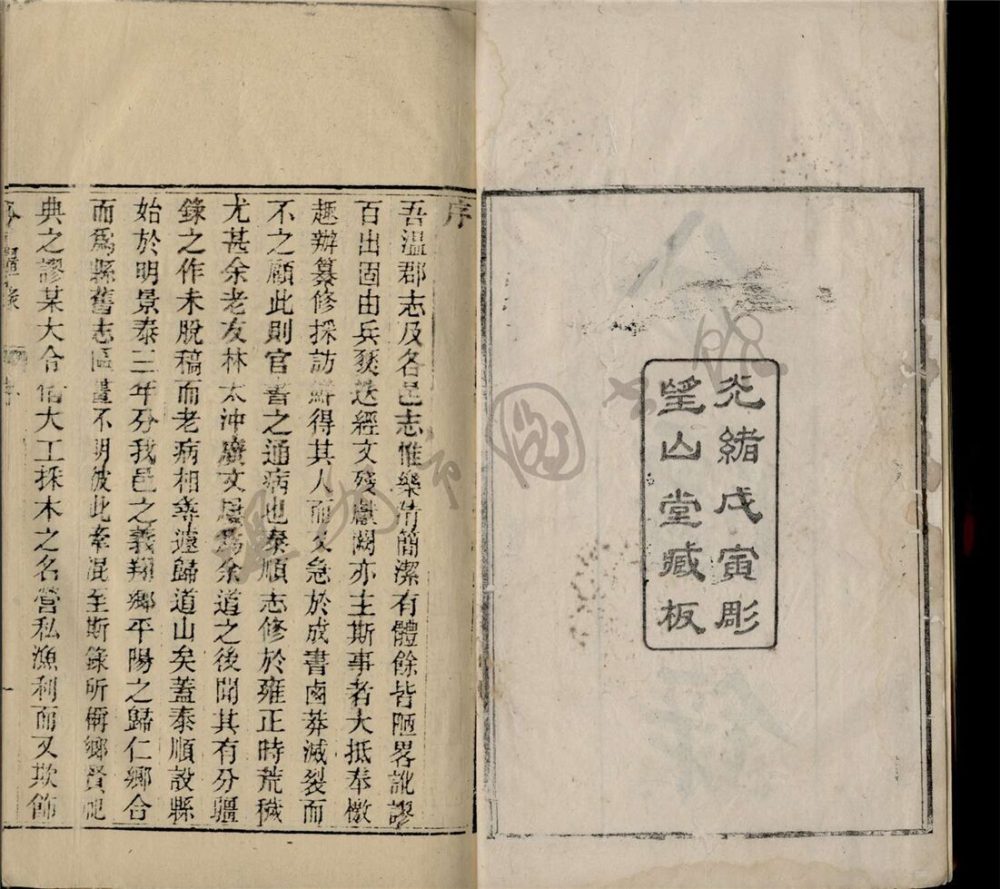 光緒戊寅彫
望山堂臧板
序
吾温郡志及各邑志惟樂清簡潔有體餘皆陋畧訛謬
百出固由兵燹迭經文殘獻闕亦主斯事者大抵奉檄
趣辦纂修採訪鮮得其人而又急於成書鹵莽滅裂而
不之顧此則官書之通病也泰順志修於雍正時荒穢
尤甚余老友林太沖廣文屢爲余道之後聞其有分疆
錄之作未脫稿而老病相等遽歸道山矣蓋泰順設縣
始於明景泰三年分我邑之義翔鄉平陽之歸仁鄉合
而爲縣舊志區畫不明彼此牽混至斯錄所偁鄉賢祀
典之謬某大合借大工採木之名營私漁利而又欺飾
分疆錄 序 一